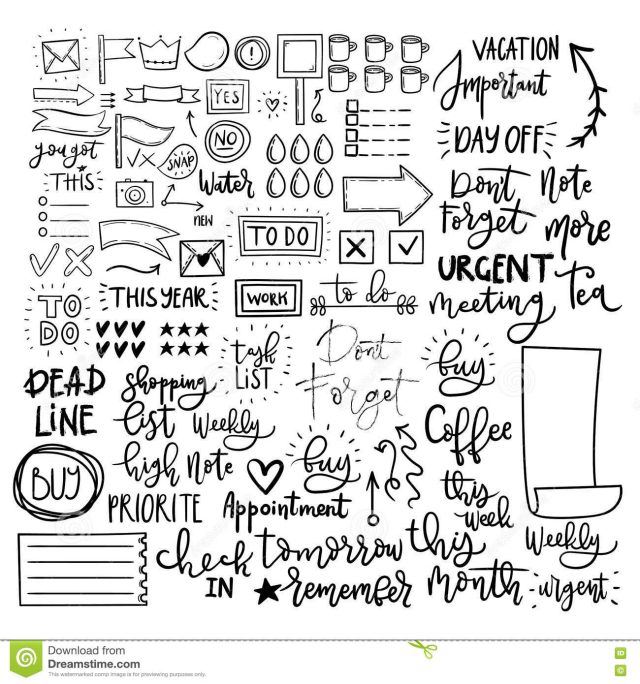 VACATION
Important
YES
DAY OFF
NO
you got
THIS
SNAP
Water
NEW
Don't
Forget
Note
More
TO DO
URGENT
Meeting
Tea
TO
DO
THIS YEAR
WORK
to do
task
LiST
Don't
Forget
buy
DEAD
LiNE
shopping
list
Weekly
Coffee
high Note
buy
BUY
PRIORITE
Appointment
this
week
Weekly
check
IN
tomorrow
remember
this
MONTH
urgent
Download from
Dreamstime.com
This watermarked comp image is for previewing purposes only.
ID